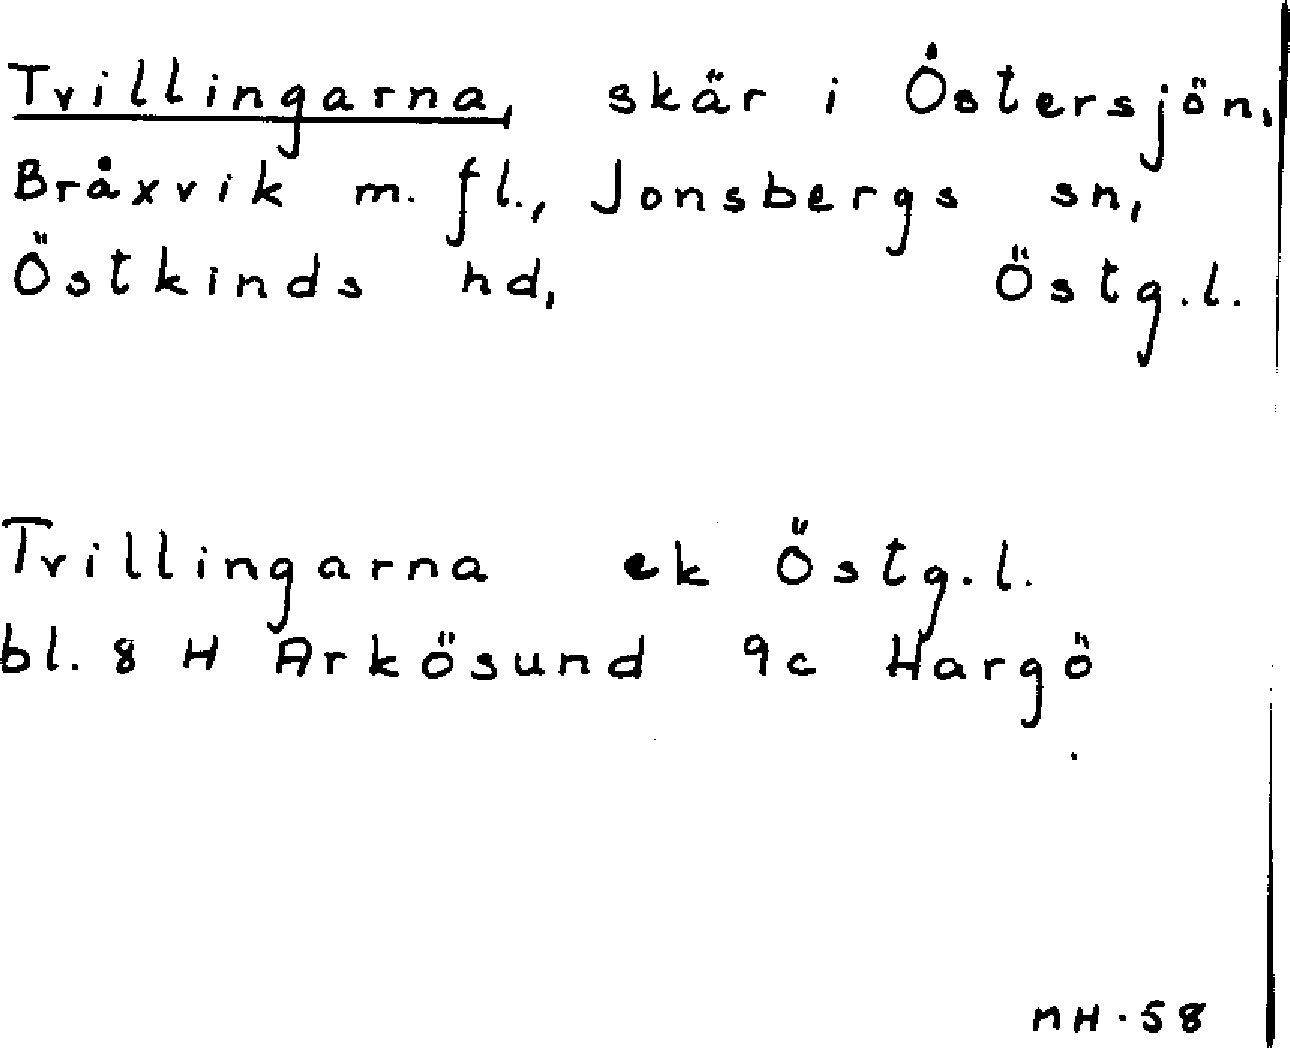 Tvillingarna, skär i Östersjön,
Bråxvik m. fl., Jonsbergs sn,
Östkinds hd, Östg.l.
Tvillingarna ek Östg.l.
bl. 8 H Arkösund 9c Hargö
MH·58